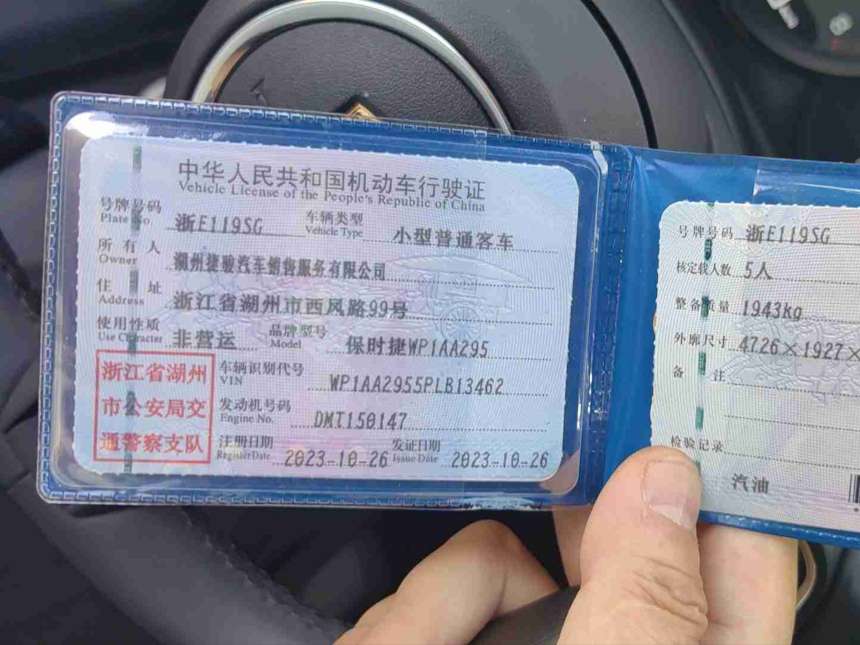 中华人民共和国机动车行驶证
Vehicle License of the People's Republic of China
号牌号码 浙E119SG 车辆类型 小型普通客车
Plate No. Vehicle Type
所有人 湖州捷骏汽车销售服务有限公司
Owner
住址 浙江省湖州市西凤路99号
Address
使用性质 非营运 品牌型号 保时捷WP1AA295
Use Character Model
浙江省湖州
市公安局交
通警察支队
车辆识别代号 WP1AA2955PLB13462
VIN
发动机号码 DMT150147
Engine No.
注册日期 2023-10-26 发证日期 2023-10-26
Register Date Issue Date
号牌号码 浙E119SG
核定载人数 5人
整备质量 1943kg
外廓尺寸 4726×1927×
备注
检验记录
汽油